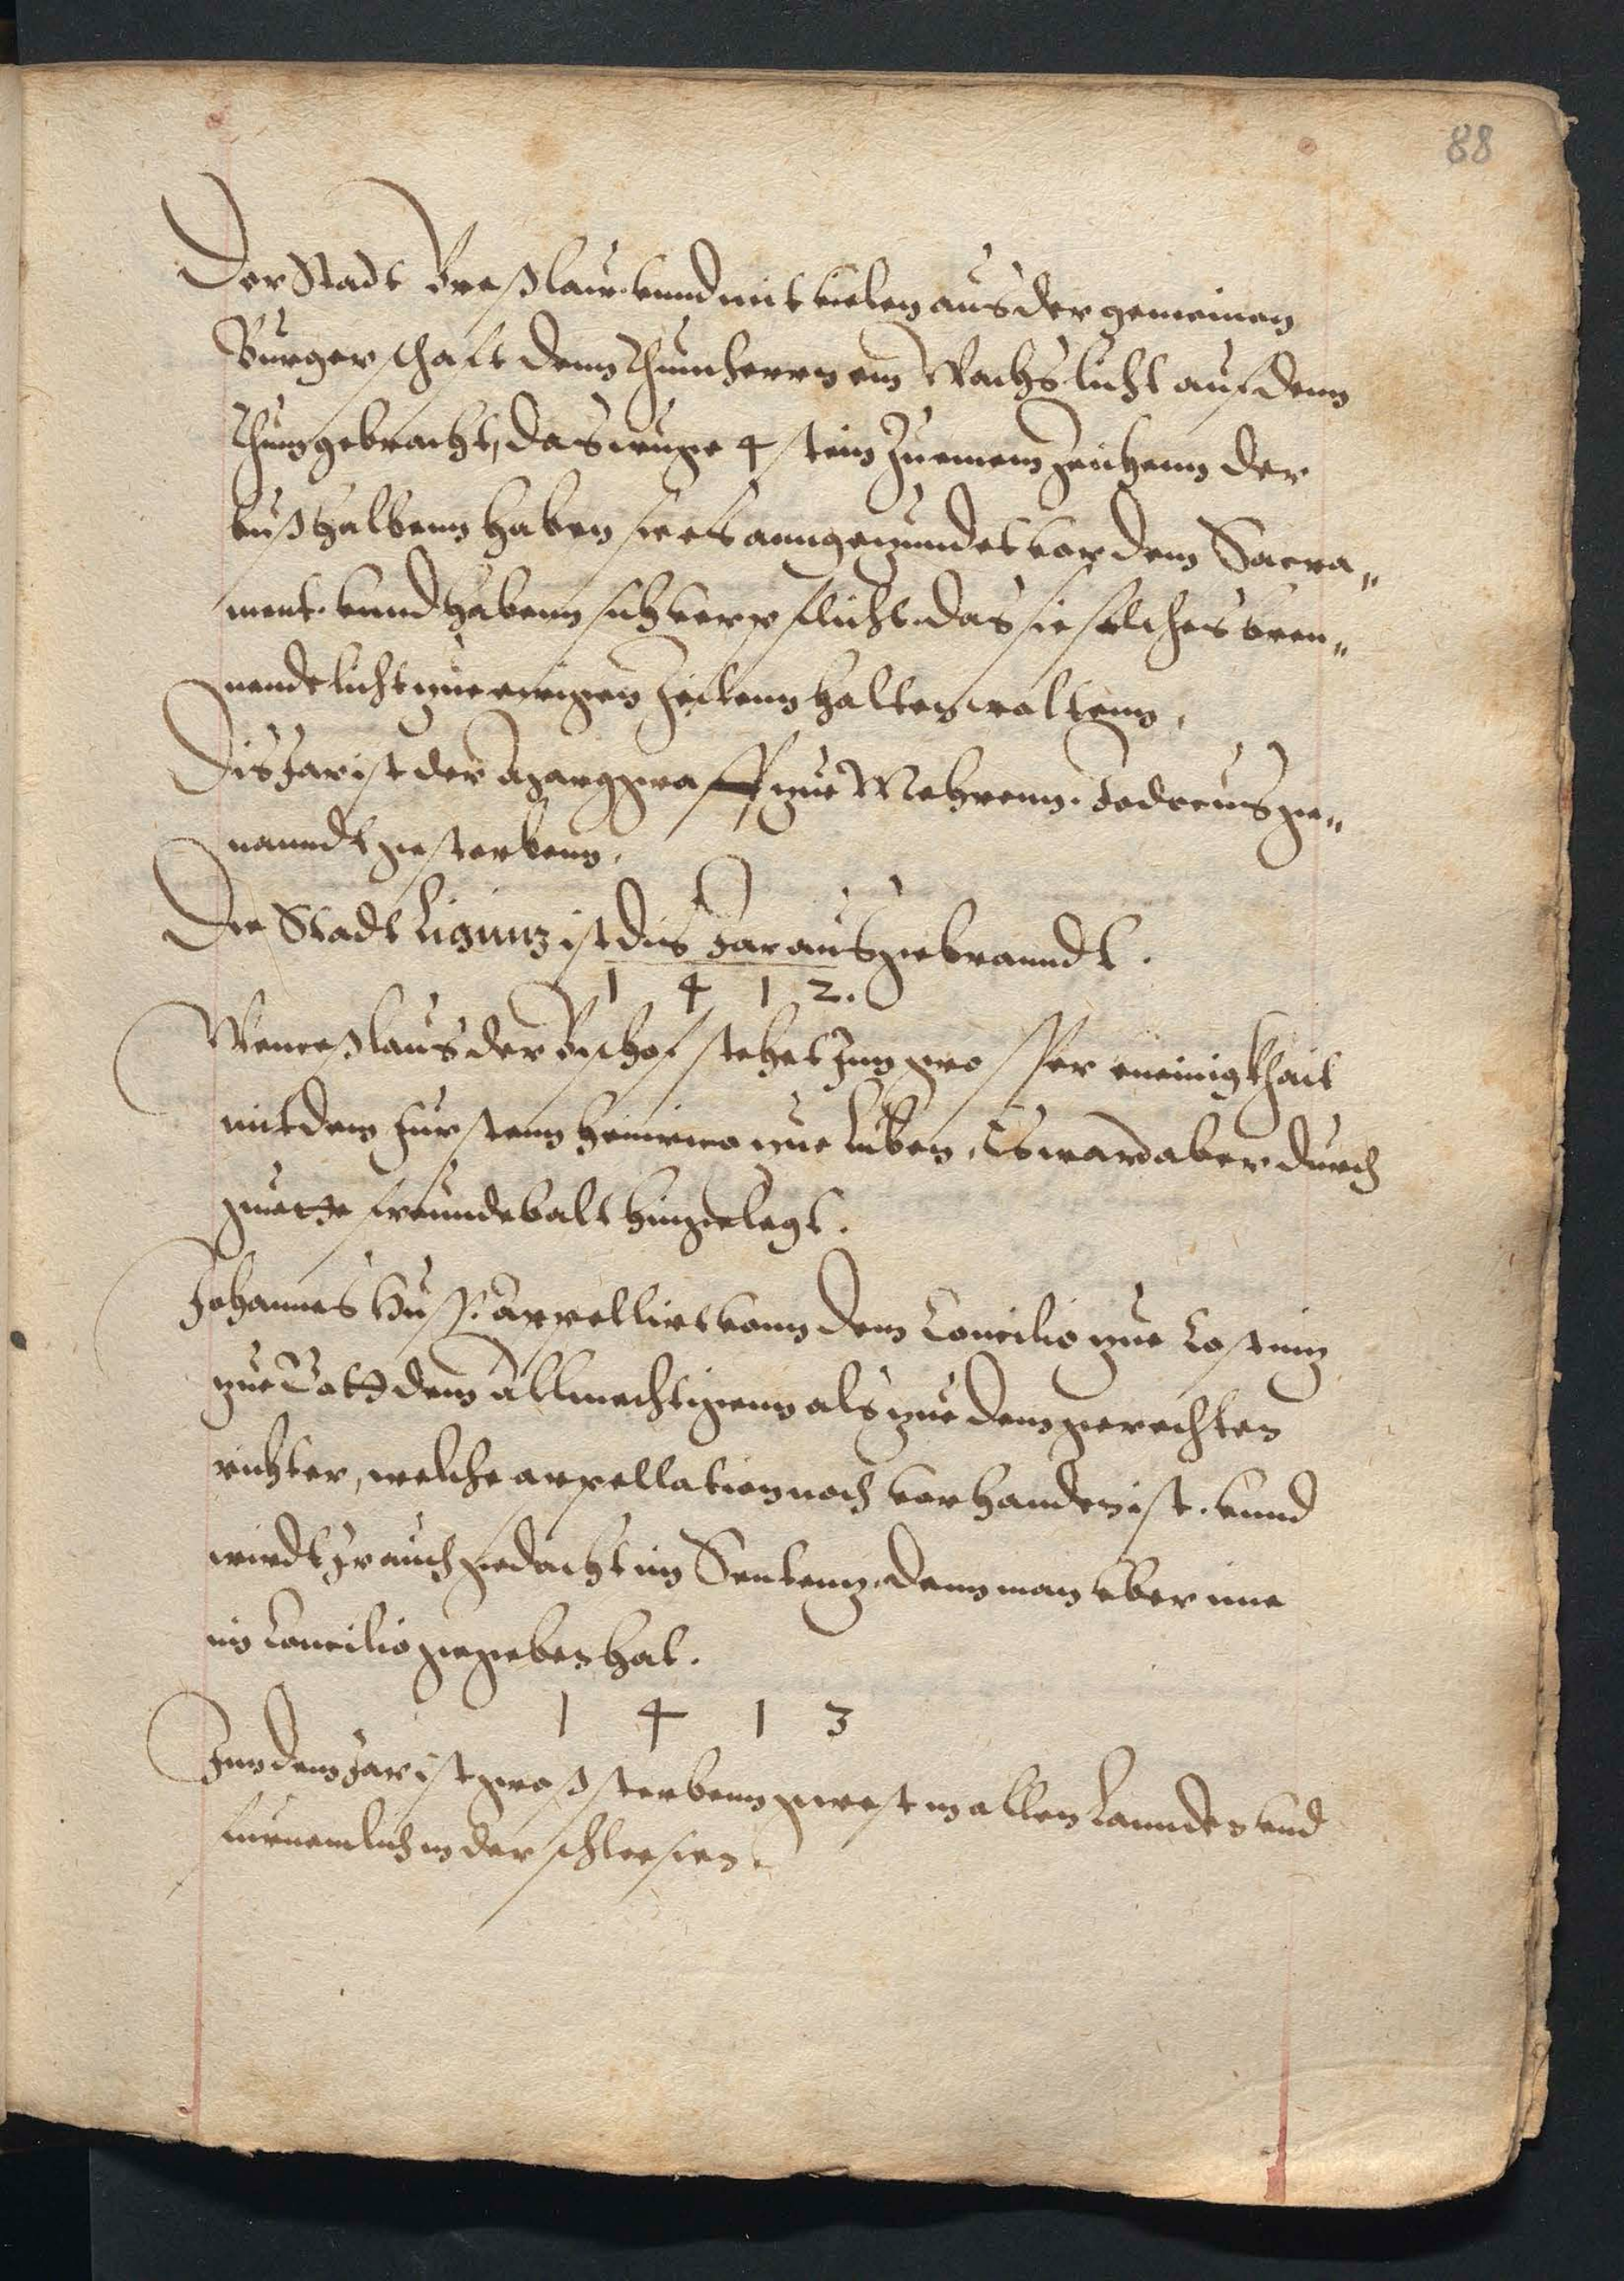 88
Der Stadt Breßlaw. vnnd mit vielen aus der gemeinen
Burgerschaft denn Thumherrn ein Wachslicht auf denn
Thum gebracht, das wuge 4 stein Zu einem Zeichenn der
buß halbenn haben sie es anngezundet vor dem Sacra„
ment. vnnd habenn sich verpflicht. das sie solches bren„
nende licht zue ewigen Zeitenn halten woltenn.
Dis Jar ist der Marggraff zue Mehrenn. Jodocus ge„
nanndt gestorbenn.
Die Stadt Lignitz ist dis Jar ausgebranndt.
1 4 1 2.
Wenceßlaus der Bischof stehet Inn grosser vneinigkhait
mit dem furstenn Heinrico zue Luben, Es ward aber durch
guette freunde balt hingelegt.
Johannes Huss. appellirt vonn dem Concilio zue Costnitz
zue Gott dem Allmechtigenn als zue dem gerechten
richter, welche appellation noch vorhanden ist. vnnd
wirdt Ir auch gedacht im Sententz. denn man vber ine
im Concilio gegeben hat.
1 4 1 3
Inn dem Jar ist groß sterbenn gwest in allen Lannden vnd
furnemlich in der schlesien.